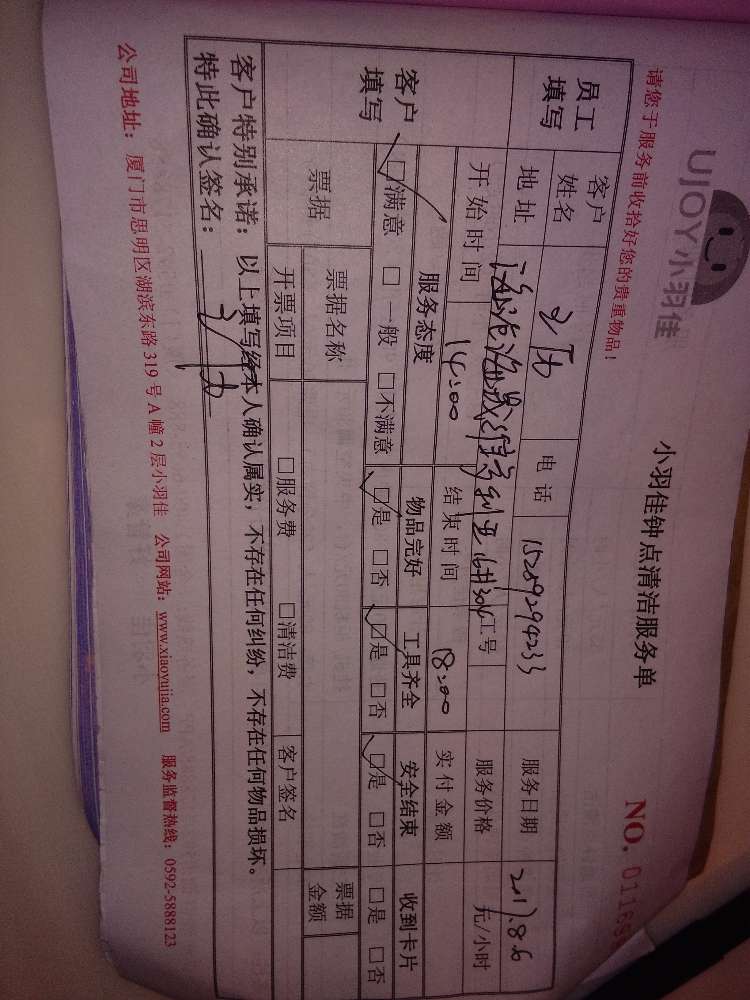 UJOY小羽佳
小羽佳钟点清洁服务单
请您于服务前收拾好您的贵重物品！
NO. 01169
员工填写
客户姓名 电话 15259294233 服务日期 2017.8.6
地址 海沧海景维多利亚6井304 工号 服务价格 元/小时
开始时间 14:00 结束时间 18:00 实付金额
客户填写
服务态度 物品完好 工具齐全 安全结束 收到卡片
☑满意 □一般 □不满意 ☑是 □否 ☑是 □否 ☑是 □否 □是 □否
票据 票据名称 票据金额
开票项目 □服务费 □清洁费 客户签名
客户特别承诺：以上填写经本人确认属实，不存在任何纠纷，不存在任何物品损坏。
特此确认签名：
公司地址：厦门市思明区湖滨东路319号A幢2层小羽佳 公司网站：www.xiaoyujia.com 服务监督热线：0592-5888123